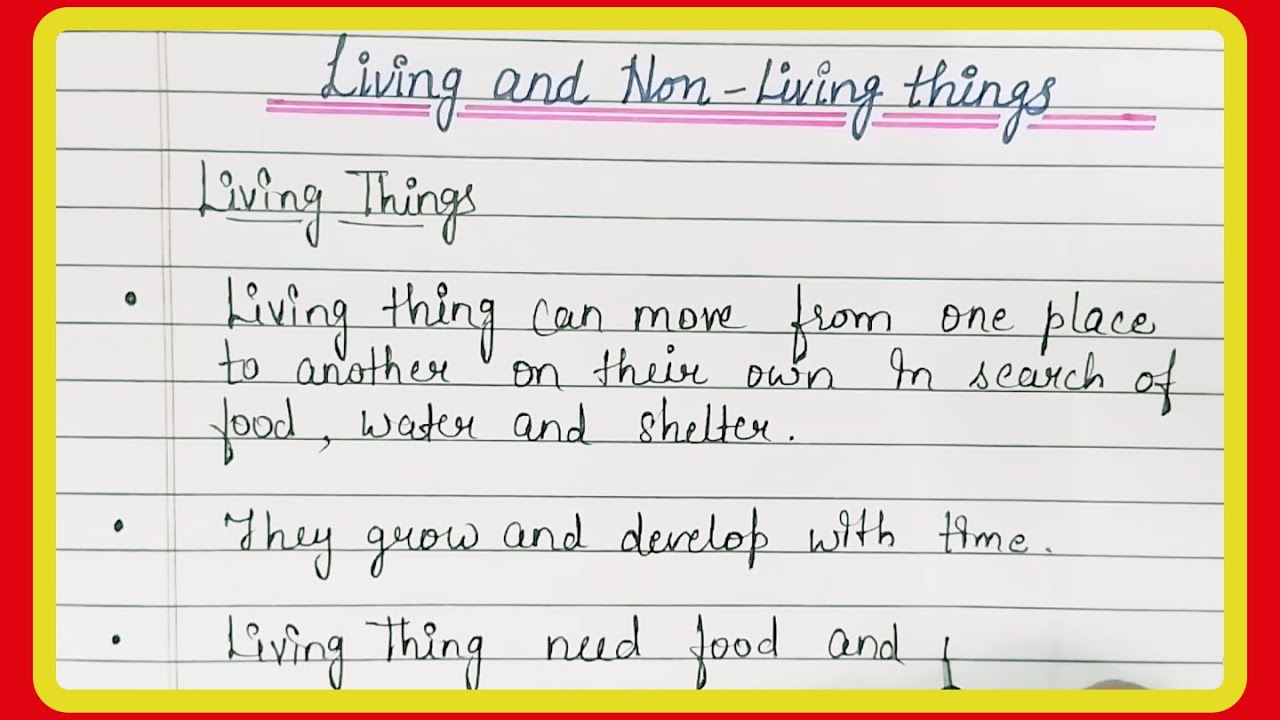 Living and Non-Living things
Living Things
• Living thing can move from one place
to another on their own In search of
food, water and shelter.
• They grow and develop with time.
• Living Thing need food and